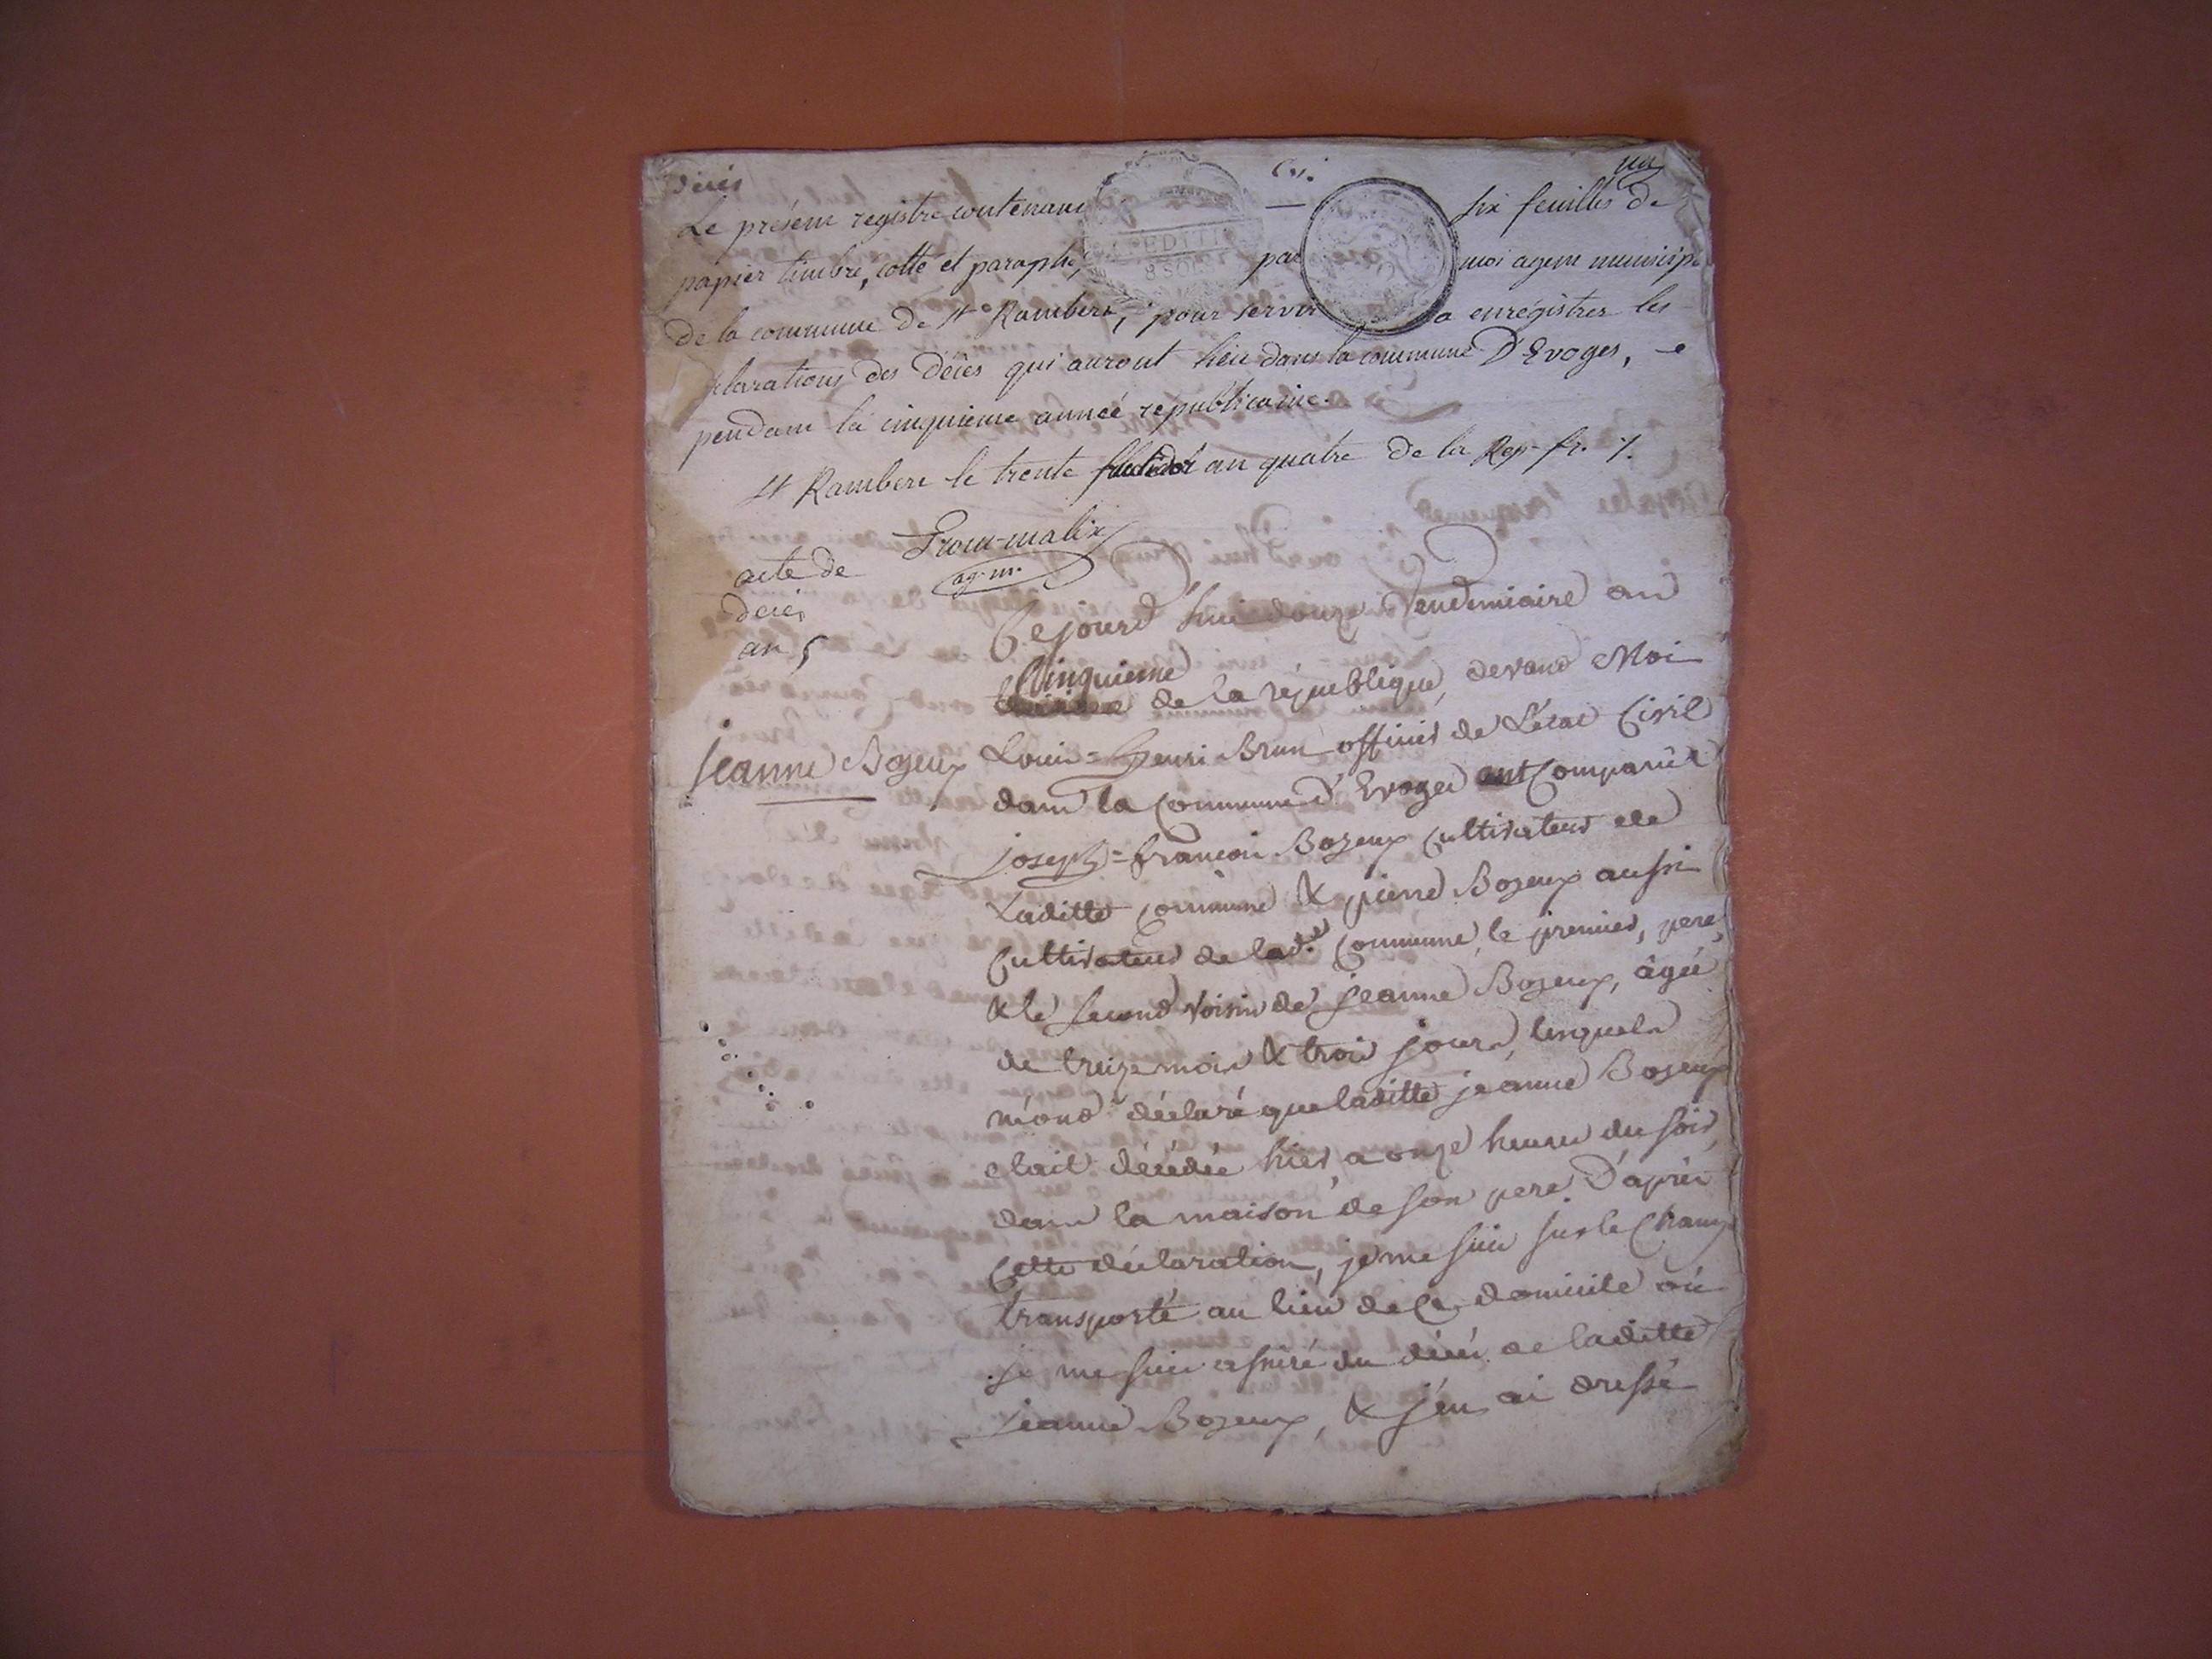 décès
un
Le présent registre contenant six feuilles de
papier timbré, cotté et paraphé, par moi agent municip
de la commune de St Rambert, pour servir a enrégistrer les
clarations des décès qui auront lieu dans la commune D'Evoges,
pendant la cinquieme année republicaine.
St Rambert le trente fructidor an quatre de la Rep. fr. %.
EXPEDITI
8 SOLS
ag. m.
acte de
décès
an 5
Cejourd'hui douze Vendemiaire an
Cinquieme de la république, devand Moi
Jeanne Bozeux
Louis=henri Brun officier de L'état Civil
dans la Commune d'Evoges ont Comparût
joseph=francois Bozeux Cultivateur de
Laditte Commune & pierre Bozeux aussi
Cultivateur de lad.e Commune, le premier, pere,
& le second voisin de jeanne Bozeux, âgée
de treize mois & trois jours, lesquels
m'ond déclaré que laditte jeanne Bozeux
etait décédée hier a onze heures du soir,
dans la maison de son pere. D'après
Cette déclaration, je me suis sur le Champ
transporté au lieu de Ce domicile où
je me suis assuré du décès de laditte
jeanne Bozeux, & j'en ai dressé